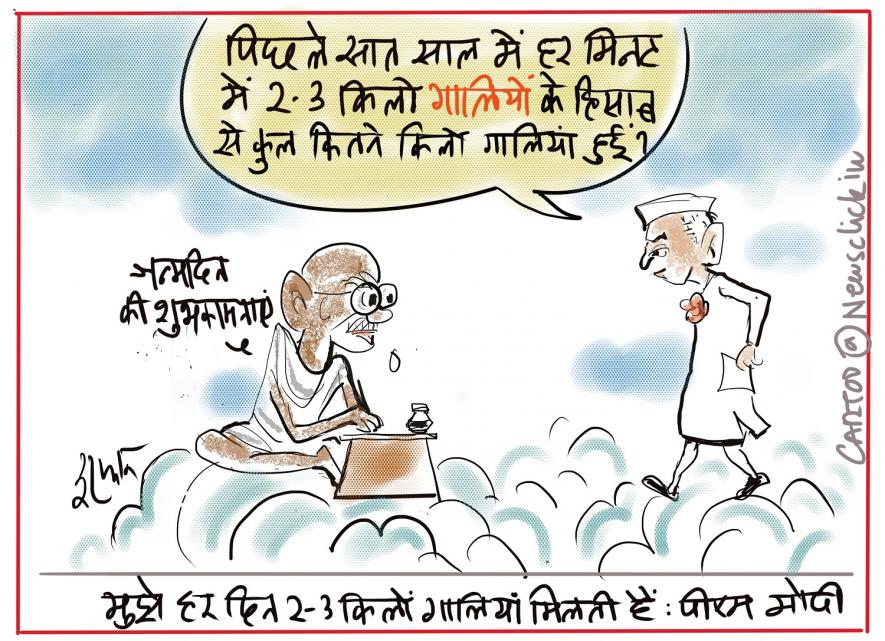 पिछले सात साल में हर मिनट
में 2-3 किलो गालियों के हिसाब
से कुल कितने किलो गालियां हुईं?
जन्मदिन
की शुभकामनाएं
CARTOO @ Newsclickin
इरफ़ान
मुझे हर दिन 2-3 किलो गालियां मिलती हैं : पीएम मोदी